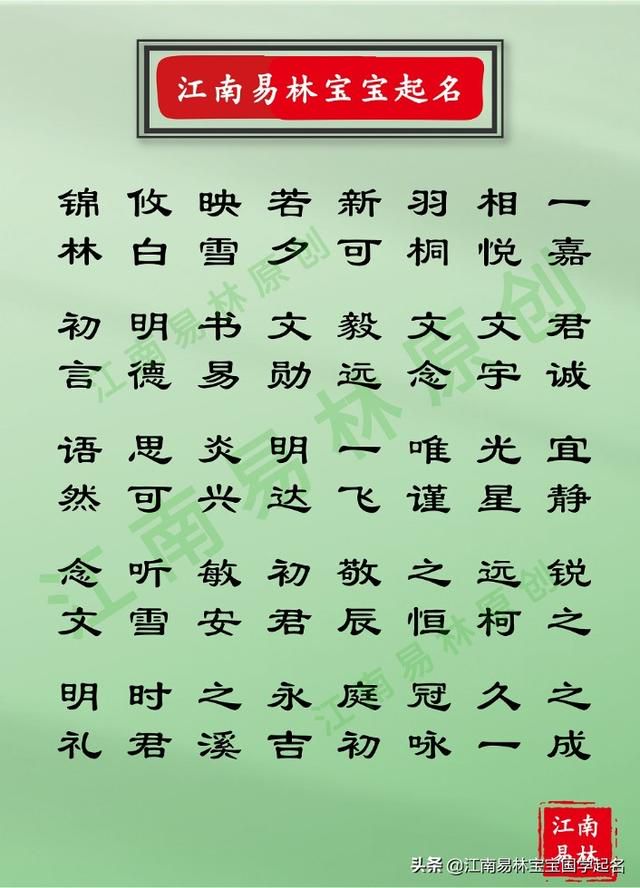 江南易林宝宝起名
锦 攸 映 若 新 羽 相 一
林 白 雪 夕 可 桐 悦 嘉
初 明 书 文 毅 文 文 君
言 德 易 勋 远 念 宇 诚
语 思 炎 明 一 唯 光 宜
然 可 兴 达 飞 谨 星 静
念 听 敏 初 敬 之 远 锐
文 雪 安 君 辰 恒 柯 之
明 时 之 永 庭 冠 久 之
礼 君 溪 吉 初 咏 一 成
江南易林原创
江南易林原创
江南易林原创
江南
易林
头条 @江南易林宝宝国学起名